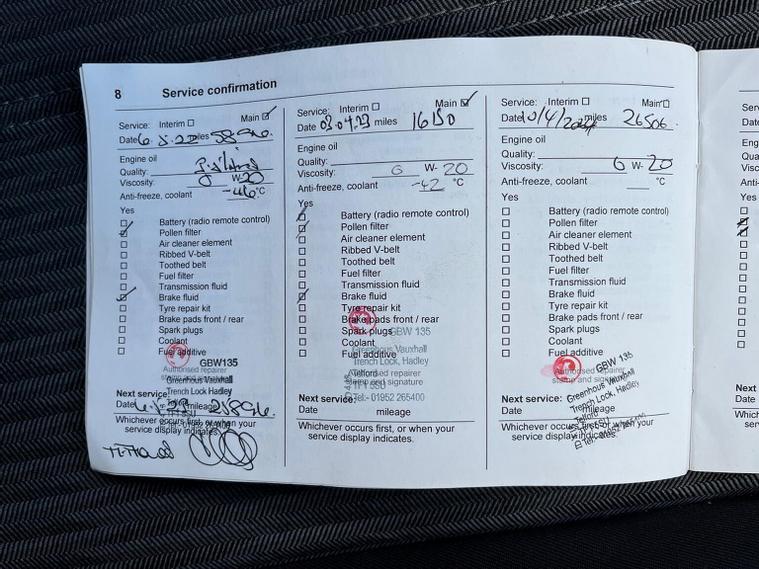 8 Service confirmation
Service: Interim Main
Date miles
Engine oil
Quality:
Viscosity: 0 W-20
Anti-freeze, coolant -46°C
Yes
Battery (radio remote control)
Pollen filter
Air cleaner element
Ribbed V-belt
Toothed belt
Fuel filter
Transmission fluid
Brake fluid
Tyre repair kit
Brake pads front / rear
Spark plugs
Coolant
Fuel additive
GBW135
Authorised repairer
stamp and signature
Greenhous Vauxhall
Trench Lock Hadley
Next service:
Date mileage
Whichever occurs first, or when your
service display indicates.
Service: Interim Main
Date 03.04.23 miles 16150
Engine oil
Quality:
Viscosity: 0 W- 20
Anti-freeze, coolant -42 °C
Yes
Battery (radio remote control)
Pollen filter
Air cleaner element
Ribbed V-belt
Toothed belt
Fuel filter
Transmission fluid
Brake fluid
Tyre repair kit
Brake pads front / rear
Spark plugs
GBW 135
Coolant
Greenhous Vauxhall
Fuel additive
Trench Lock, Hadley
Authorised repairer
Telford
stamp and signature
Tel:- 01952 265400
Next service:
Date mileage
Whichever occurs first, or when your
service display indicates.
Service: Interim Main
Date 10/4/2024 miles 26506
Engine oil
Quality:
Viscosity: 0 W- 20
Anti-freeze, coolant °C
Yes
Battery (radio remote control)
Pollen filter
Air cleaner element
Ribbed V-belt
Toothed belt
Fuel filter
Transmission fluid
Brake fluid
Tyre repair kit
Brake pads front / rear
Spark plugs
Coolant
Fuel additive
GBW 135
Authorised repairer
stamp and
Greenhous Vauxhall
Trench Lock, Hadley
Telford
Next service:
Date mileage
Whichever occurs first, or when your
service display indicates.